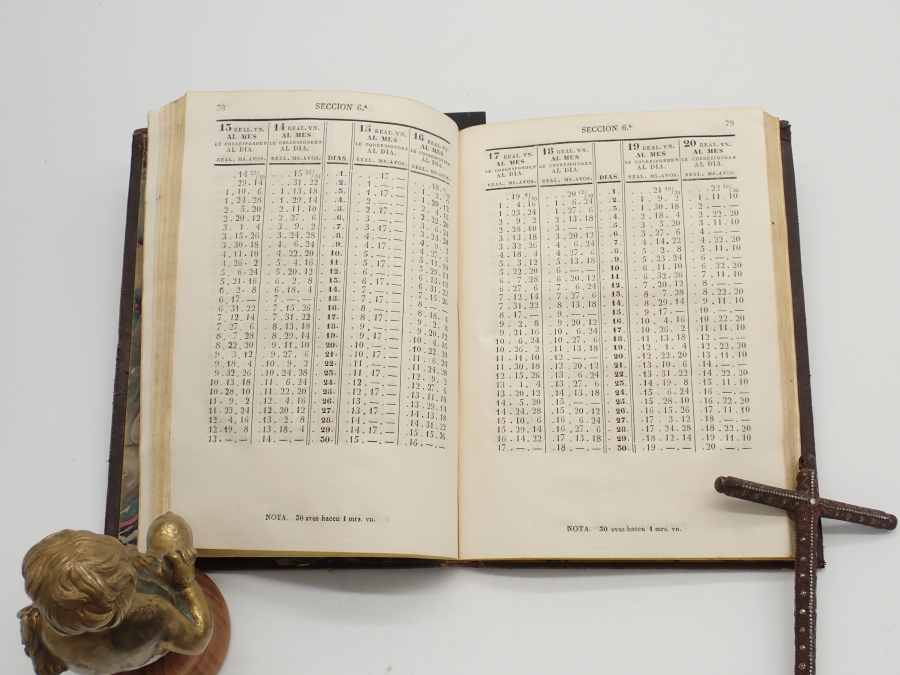 78 SECCION 6.ª
13 REAL. VN. 14 REAL. VN. 15 REAL. VN. 16 REAL. VN.
AL MES AL MES AL MES AL MES
LE CORRESPONDEN LE CORRESPONDEN LE CORRESPONDEN LE CORRESPONDEN
AL DIA. AL DIA. AL DIA. AL DIA.
REAL. MS. AVOS. REAL. MS. AVOS. DIAS. REAL. MS. AVOS. REAL. MS. AVOS.
14 22/30 15 26/30 1. . 17 . — . 18 . 4/30
29 . 14 . 31 . 22 2. 1 . — . — 1 . 2 . 8
1 . 10 . 6 1 . 13 . 18 3. 1 . 17 . — 1 . 20 . 12
1 . 24 . 28 1 . 29 . 14 4. 2 . — . — 2 . 4 . 16
2 . 5 . 20 2 . 11 . 10 5. 2 . 17 . — 2 . 22 . 20
2 . 20 . 12 2 . 27 . 6 6. 3 . — . — 3 . 6 . 24
3 . 1 . 4 3 . 9 . 2 7. 3 . 17 . — 3 . 24 . 28
3 . 15 . 26 3 . 24 . 28 8. 4 . — . — 4 . 9 . 2
3 . 30 . 18 4 . 6 . 24 9. 4 . 17 . — 4 . 27 . 6
4 . 11 . 10 4 . 22 . 20 10. 5 . — . — 5 . 11 . 10
4 . 26 . 2 5 . 4 . 16 11. 5 . 17 . — 5 . 29 . 14
5 . 6 . 24 5 . 20 . 12 12. 6 . — . — 6 . 13 . 18
5 . 21 . 16 6 . 2 . 8 13. 6 . 17 . — 6 . 31 . 22
6 . 2 . 8 6 . 18 . 4 14. 7 . — . — 7 . 15 . 26
6 . 17 . — 7 . — . — 15. 7 . 17 . — 8 . — . —
6 . 31 . 22 7 . 15 . 26 16. 8 . — . — 8 . 18 . 4
7 . 12 . 14 7 . 31 . 22 17. 8 . 17 . — 9 . 2 . 8
7 . 27 . 6 8 . 13 . 18 18. 9 . — . — 9 . 20 . 12
8 . 7 . 28 8 . 29 . 14 19. 9 . 17 . — 10 . 4 . 16
8 . 22 . 20 9 . 11 . 10 20. 10 . — . — 10 . 22 . 20
9 . 3 . 12 9 . 27 . 6 21. 10 . 17 . — 11 . 6 . 24
9 . 18 . 4 10 . 9 . 2 22. 11 . — . — 11 . 24 . 28
9 . 32 . 26 10 . 24 . 28 23. 11 . 17 . — 12 . 9 . 2
10 . 13 . 18 11 . 6 . 24 24. 12 . — . — 12 . 27 . 6
10 . 28 . 10 11 . 22 . 20 25. 12 . 17 . — 13 . 11 . 10
11 . 9 . 2 12 . 4 . 16 26. 13 . — . — 13 . 29 . 14
11 . 23 . 24 12 . 20 . 12 27. 13 . 17 . — 14 . 13 . 18
12 . 4 . 16 13 . 2 . 8 28. 14 . — . — 14 . 31 . 22
12 . 19 . 8 13 . 18 . 4 29. 14 . 17 . — 15 . 15 . 26
13 . — . — 14 . — . — 30. 15 . — . — 16 . — . —
NOTA. 30 avos hacen 1 mrs. vn.
SECCION 6.ª 79
17 REAL. VN. 18 REAL. VN. 19 REAL. VN. 20 REAL. VN.
AL MES AL MES AL MES AL MES
LE CORRESPONDEN LE CORRESPONDEN LE CORRESPONDEN LE CORRESPONDEN
AL DIA. AL DIA. AL DIA. AL DIA.
REAL. MS. AVOS. REAL. MS. AVOS. DIAS. REAL. MS. AVOS. REAL. MS. AVOS.
. 19 . 8/30 . 20 12/30 1. . 21 16/30 . 22 20/30
1 . 4 . 16 1 . 6 . 24 2. 1 . 9 . 2 1 . 11 . 10
1 . 23 . 24 1 . 27 . 6 3. 1 . 30 . 18 2 . — . —
2 . 9 . 2 2 . 13 . 18 4. 2 . 18 . 4 2 . 22 . 20
2 . 28 . 10 3 . — . — 5. 3 . 5 . 20 3 . 11 . 10
3 . 13 . 18 3 . 20 . 12 6. 3 . 27 . 6 4 . — . —
3 . 32 . 26 4 . 6 . 24 7. 4 . 14 . 22 4 . 22 . 20
4 . 18 . 4 4 . 27 . 6 8. 5 . 2 . 8 5 . 11 . 10
5 . 3 . 12 5 . 13 . 18 9. 5 . 23 . 24 6 . — . —
5 . 22 . 20 6 . — . — 10. 6 . 11 . 10 6 . 22 . 20
6 . 7 . 28 6 . 20 . 12 11. 6 . 32 . 26 7 . 11 . 10
6 . 27 . 6 7 . 6 . 24 12. 7 . 20 . 12 8 . — . —
7 . 12 . 14 7 . 27 . 6 13. 8 . 7 . 28 8 . 22 . 20
7 . 31 . 22 8 . 13 . 18 14. 8 . 29 . 14 9 . 11 . 10
8 . 17 . — 9 . — . — 15. 9 . 17 . — 10 . — . —
9 . 2 . 8 9 . 20 . 12 16. 10 . 4 . 16 10 . 22 . 20
9 . 21 . 16 10 . 6 . 24 17. 10 . 26 . 2 11 . 11 . 10
10 . 6 . 24 10 . 27 . 6 18. 11 . 13 . 18 12 . — . —
10 . 26 . 2 11 . 13 . 18 19. 12 . 1 . 4 12 . 22 . 20
11 . 11 . 10 12 . — . — 20. 12 . 22 . 20 13 . 11 . 10
11 . 30 . 18 12 . 20 . 12 21. 13 . 10 . 6 14 . — . —
12 . 15 . 26 13 . 6 . 24 22. 13 . 31 . 22 14 . 22 . 20
13 . 1 . 4 13 . 27 . 6 23. 14 . 19 . 8 15 . 11 . 10
13 . 20 . 12 14 . 13 . 18 24. 15 . 6 . 24 16 . — . —
14 . 5 . 20 15 . — . — 25. 15 . 28 . 10 16 . 22 . 20
14 . 24 . 28 15 . 20 . 12 26. 16 . 15 . 26 17 . 11 . 10
15 . 10 . 6 16 . 6 . 24 27. 17 . 3 . 12 18 . — . —
15 . 29 . 14 16 . 27 . 6 28. 17 . 24 . 28 18 . 22 . 20
16 . 14 . 22 17 . 13 . 18 29. 18 . 12 . 14 19 . 11 . 10
17 . — . — 18 . — . — 30. 19 . — . — 20 . — . —
NOTA. 30 avos hacen 1 mrs. vn.